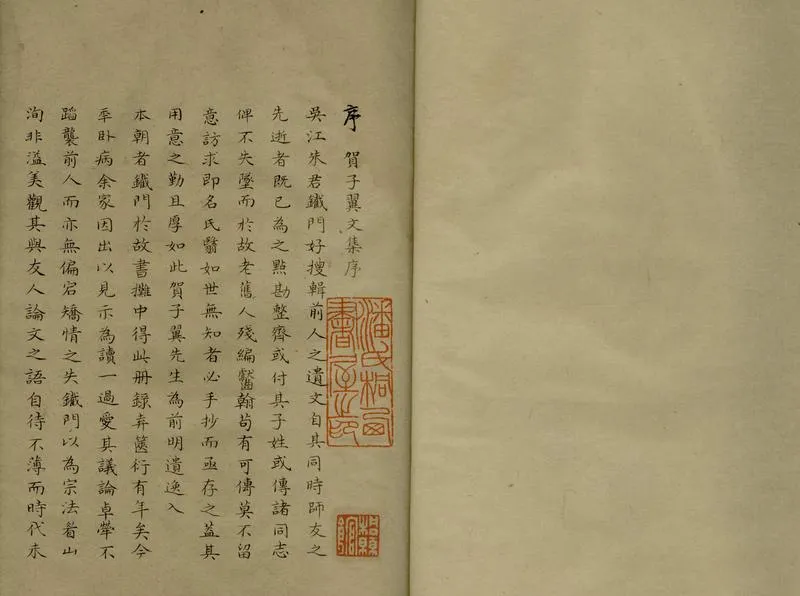 序
賀子翼文集序
吳江朱君鐵門好搜輯前人之遺文自其同時師友之
先逝者既已為之點勘整齊或付其子姓或傳諸同志
俾不失墜而於故老舊人殘編齾翰苟有可傳莫不留
意訪求即名氏翳如世無知者必手抄而亟存之蓋其
用意之勤且厚如此賀子翼先生為前明遺逸入
本朝者鐵門於故書攤中得此冊錄弆篋衍有年矣今
年臥病余家因出以見示為讀一過愛其議論卓犖不
蹈襲前人而亦無偏宕矯情之失鐵門以為宗法眉山
洵非溢美觀其與友人論文之語自待不薄而時代未
潘氏桐西書屋之印